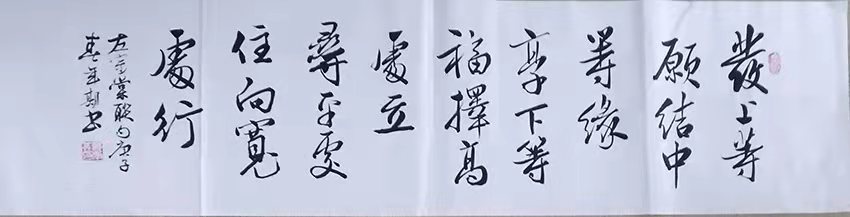 發上等
願結中
等緣
享下等
福擇高
處立
尋平處
住向寬
處行
左宗棠聯句庚子
春年期书